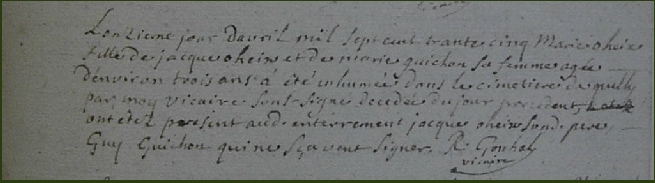 Lonzieme jour davril mil sept cent trante cinq Marie oheix
fille de jacque oheix et de marie guichon sa femme agée
denviron trois ans a été inhumée dans le cimetiere de quilly
par moy vicaire sous signe decedée du jour precedent,
ont étez present aud. enterrement jacque oheix sond. pere,
Guy Guichon qui ne sçavent signer.
vicaire